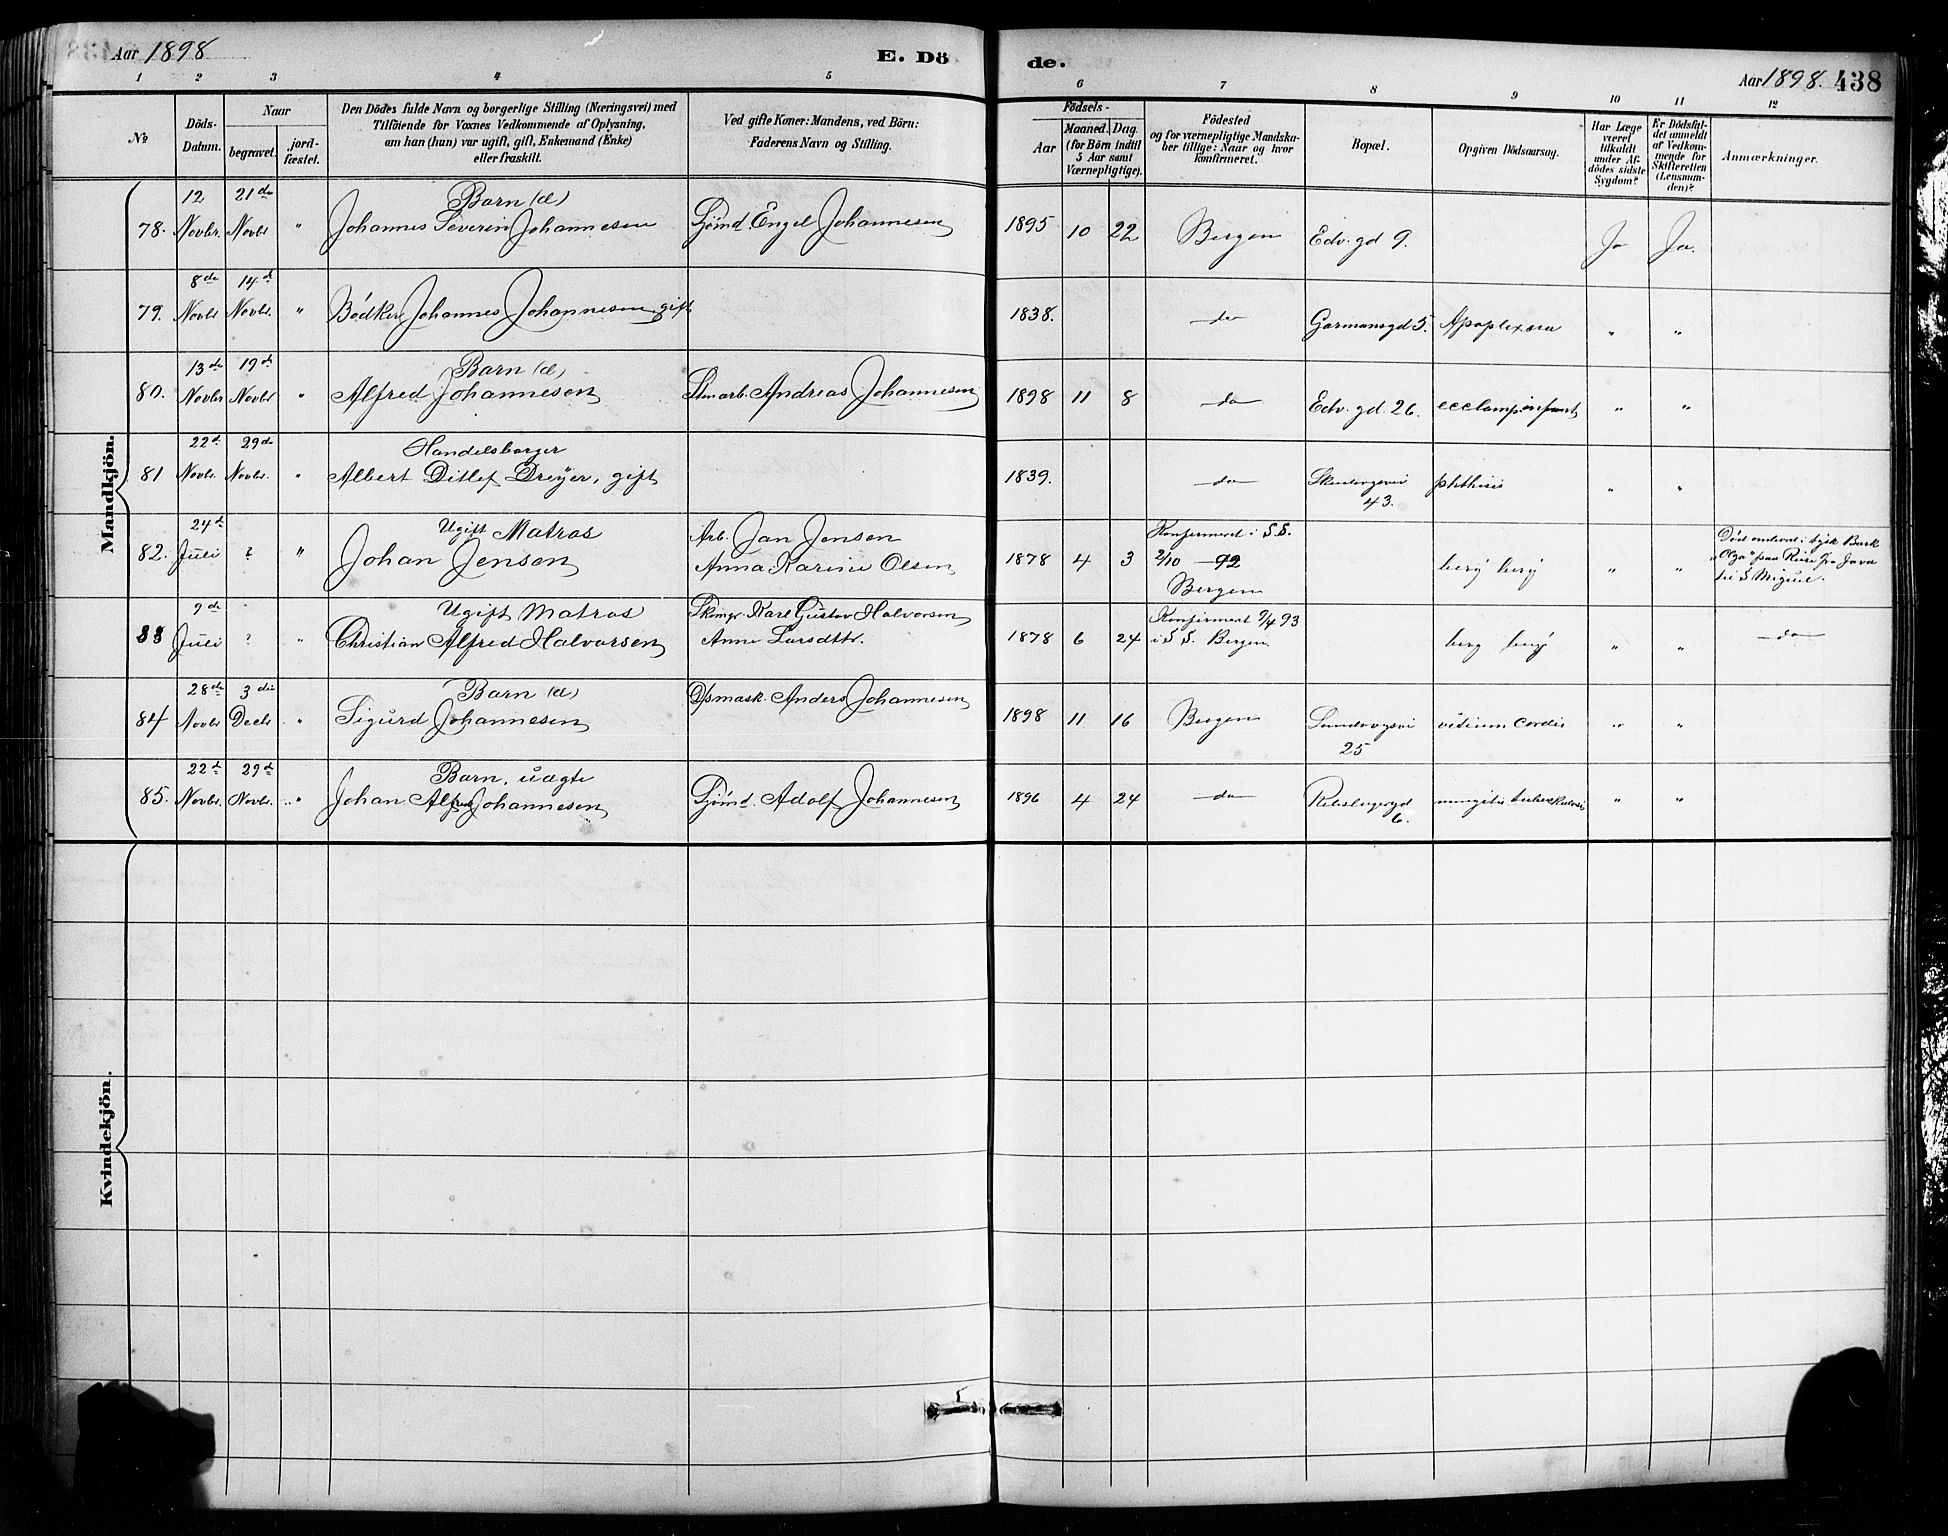 Aar 1898
E. Dö
de.
Aar 1898. 438
1 2 3 4 5 6 7 8 9 10 11 12
№
Döds-
Datum.
Naar
begravet.
jord-
fæstet.
Den Dödes fulde Navn og borgerlige Stilling (Næringsvei) med
Tilföiende for Voxnes Vedkommende af Oplysning,
om han (hun) var ugift, gift, Enkemand (Enke)
eller fraskilt.
Ved gifte Koner: Mandens, ved Börn:
Faderens Navn og Stilling.
Födsels-
Aar
Maaned. Dag.
(for Börn indtil
5 Aar samt
Værnepligtige).
Födested
og for værnepligtige Mandska-
ber tillige: Naar og hvor
konfirmeret.
Bopæl.
Opgiven Dödsaarsag.
Har Læge
været
tilkaldt
under Af-
dödes sidste
Sygdom?
Er Dödsfal-
det anmeldt
af Vedkom-
mende for
Skifteretten
(Lensman-
den)?
Anmærkninger.
Mandkjön.
78. 12 Novbr. 21de Novbr " Barn (æ)
Johannes Severin Johannesen Sjømd. Engel Johannesen 1895 10 22 Bergen Edv. gd 9. Ja Ja.
79. 8de Novbr 14d Novbr. " Bødker Johannes Johannesen, gift 1838. do Garmansgd 5. Apoplexia " "
80. 13de Novbr 19d Novbr " Barn (æ)
Alfred Johannesen Andreas Johannesen 1898 11 8 do Edv. gd 26. " "
81 22d Novbr. 29de Novbr. " Handelsborger
Albert Ditlef Dreÿer, gift 1839. do 43. phthisis " "
82. 24d Juli ? " Ugift Matros
Johan Jensen Arb. Jan Jensen
Anna Karine Olsen 1878 4 3 Konfirmeret i S.S.
2/10 92
Bergen berÿ berÿ " " Død ombord i tysk Bark
"Olga" paa Reise fra Java
til S Miguel.
83 9de Juli ? " Ugift Matros
Christian Alfred Halvorsen Karl Gustav Halvorsen
Anne Larsdttr. 1878 6 24 Konfirmeret 9/4 93
i S S. Bergen " " do
84 28de Novbr 3die Decbr " Barn (æ)
Sigurd Johannesen Anders Johannesen 1898 11 16 Bergen 25 vitium cordis " "
85. 22d Novbr. 29de Novbr. " Barn, uægte
Johan Alfred Johannesen Sjømd. Adolf Johannesen 1896 4 24 do 6. " "
Kvindekjön.